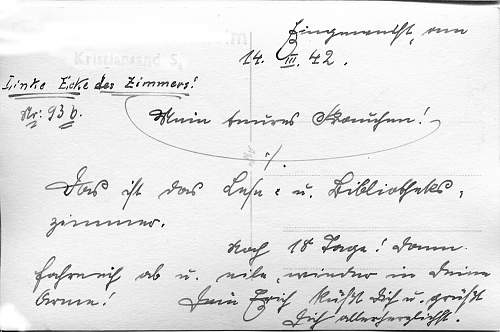 am
Kristiansand S.
14. III. 42.
Linke Ecke des Zimmers!
Nr: 93 b.
Mein teures Frauchen!
./.
Das ist das Lese- u. Bibliotheks-
zimmer.
Noch 18 Tage! Dann
fahre ich ab u. eile wieder in Deine
Arme! Dein Erich küßt Dich u. grüßt
Dich allerherzlichst.